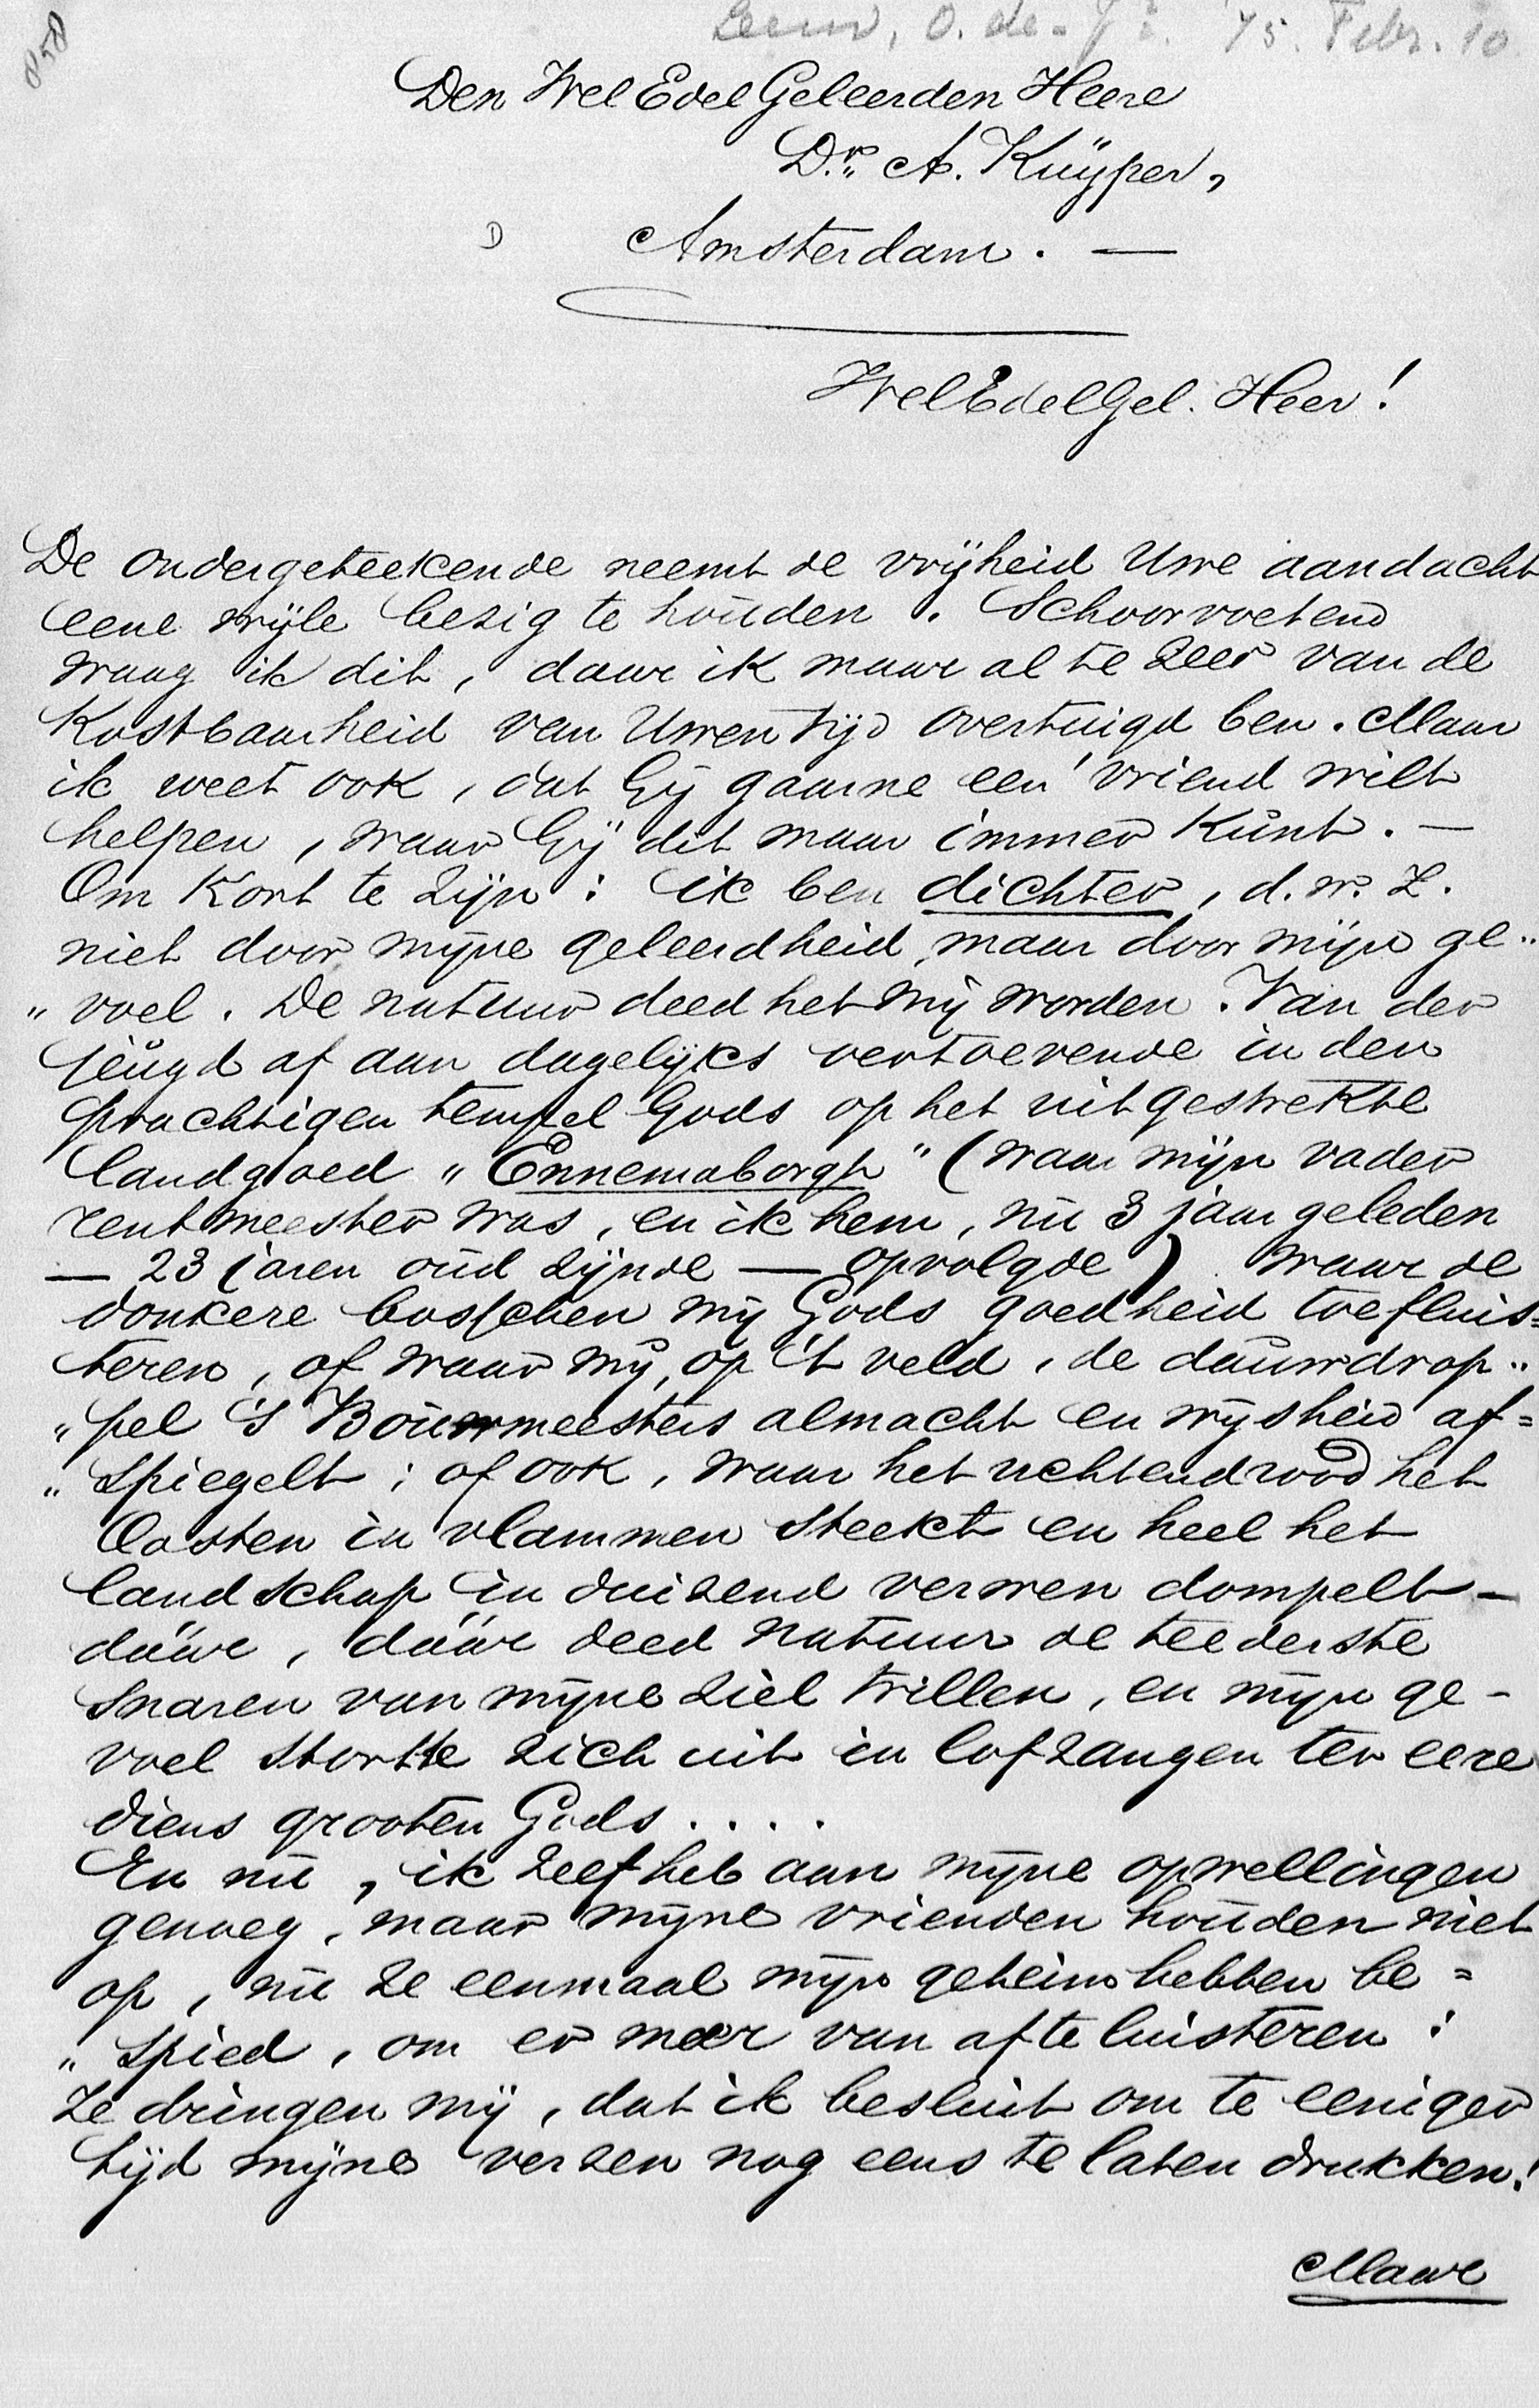 858
Leeuw, O. de - '75. Febr. 10
Den WelEdelGeleerden Heere
Dr. A. Kuÿper,
Amsterdam. —
WelEdelGel. Heer!
De ondergeteekende neemt de vrijheid Uwe aandacht
eene wijle bezig te houden. Schoorvoetend
waag ik dit, daar ik maar al te zeer van de
kostbaarheid van Uwen tijd overtuigd ben. Maar
ik weet ook, dat Gij gaarne een' vriend wilt
helpen, waar Gij dit maar immer kunt. —
Om kort te zijn: ik ben dichter, d.w.z.
niet door mijne geleerdheid, maar door mijn ge„
„voel. De natuur deed het mij worden. Van der
jeugd af aan dagelijks vertoevende in den
prachtigen tempel Gods op het uitgestrekte
landgoed „Ennemaborgh" (waar mijn vader
rentmeester was, en ik hem, nu 3 jaar geleden
— 23 jaren oud zijnde — opvolgde) waar de
donkere bosschen mij Gods goedheid toefluis=
teren, of waar mij, op 't veld, de dauwdrop„
„pel 's Bouwmeesters almacht en wijsheid af=
„spiegelt; of ook, waar het uchtendrood het
Oosten in vlammen steekt en heel het
landschap in duizend verwen dompelt —
dáár, dáár deed natuur de teederste
snaren van mijne ziel trillen, en mijn ge-
voel stortte zich uit in lofzangen ter eere
diens grooten Gods....
En nu, ik zelf heb aan mijne opwellingen
genoeg, maar mijne vrienden houden niet
op, nu ze eenmaal mijn geheim hebben be=
„spied, om er meer van af te luisteren:
Ze dringen mij, dat ik besluit om te eeniger
tijd mijne verzen nog eens te laten drukken!
Maar